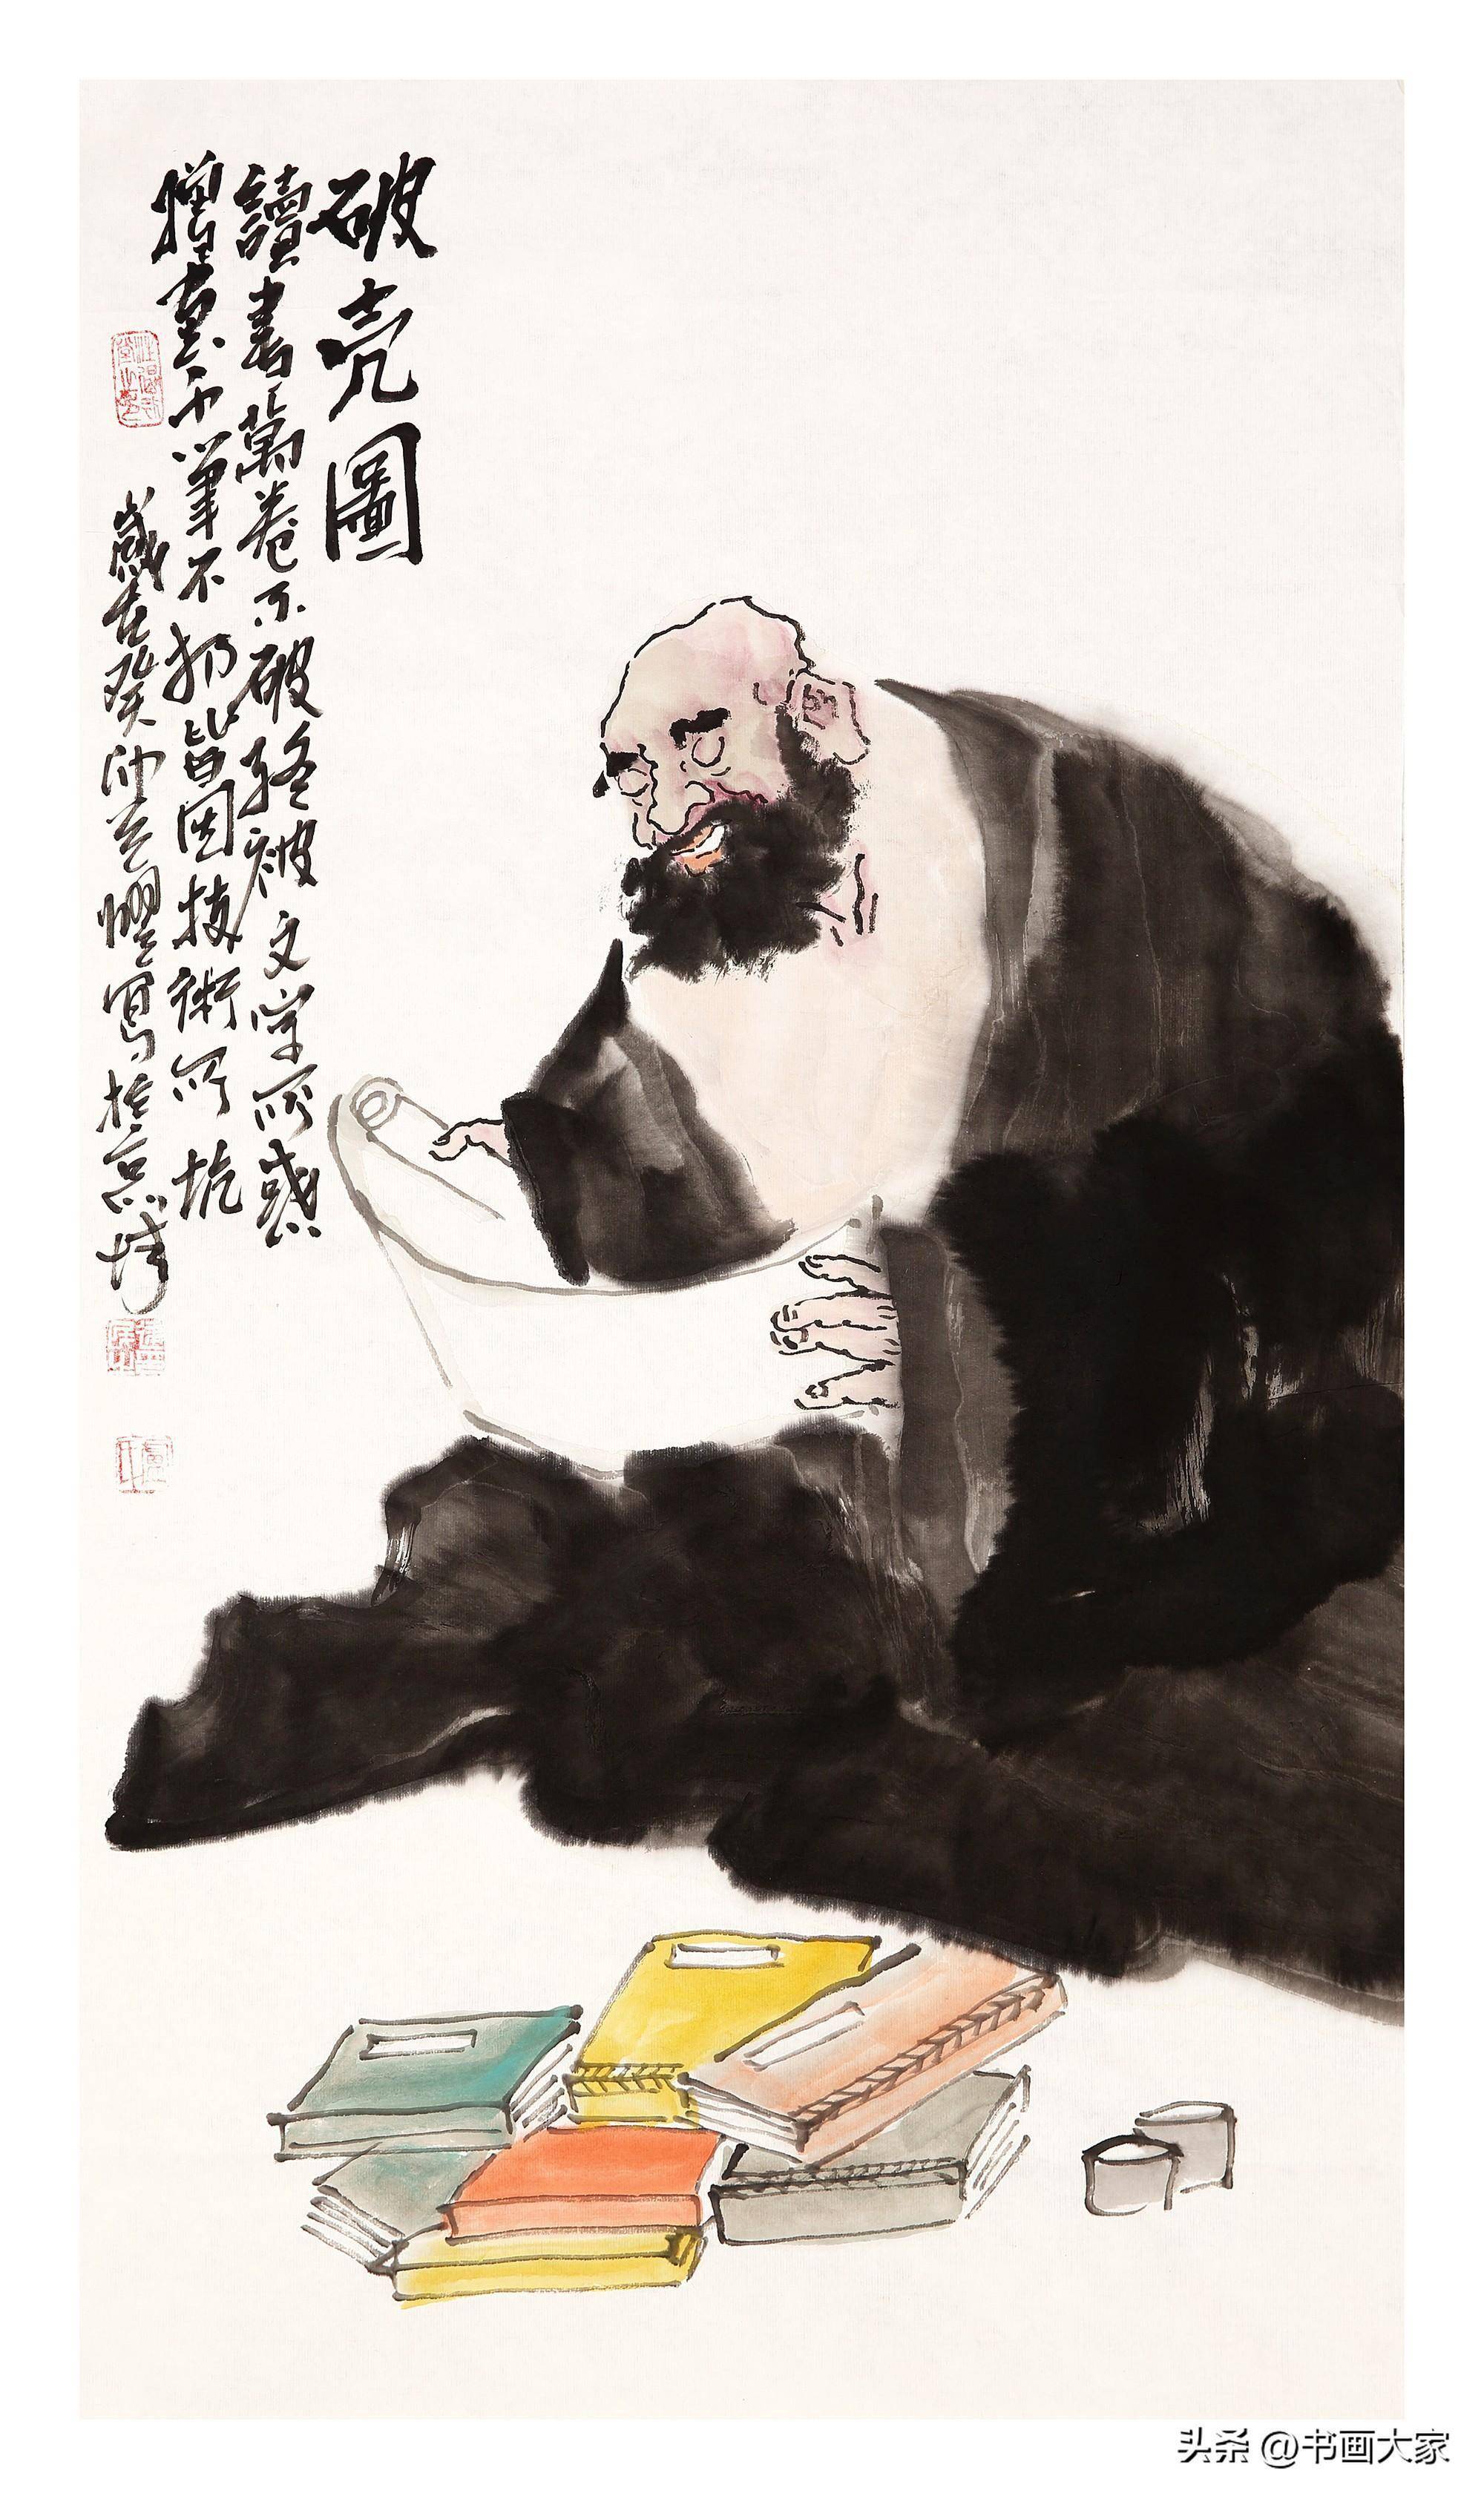 破壳圖
讀書萬卷不破終被文字所惑
畫千筆不扔皆因技術所坑
歲在癸卯寫於京城
头条 @书画大家